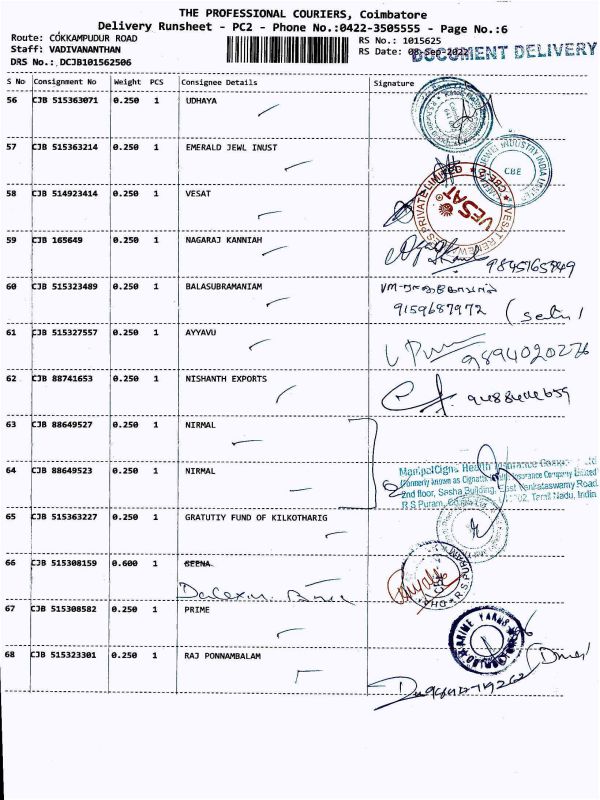 THE PROFESSIONAL COURIERS, Coimbatore
Delivery Runsheet - PC2 - Phone No.:0422-3505555 - Page No.:6
Route: COKKAMPUDUR ROAD
RS No.: 1015625
Staff: VADIVANANTHAN
RS Date: 08-Sep-2022
DOCUMENT DELIVERY
DRS No.: DCJB101562506
S No Consignment No Weight PCS Consignee Details Signature
56 CJB 515363071 0.250 1 UDHAYA
57 CJB 515363214 0.250 1 EMERALD JEWL INUST
JEWEL INDUSTRY INDIA LIMITED
CBE
58 CJB 514923414 0.250 1 VESAT
VESAT
PRIVATE LIMITED
59 CJB 165649 0.250 1 NAGARAJ KANNIAH
9845765949
60 CJB 515323489 0.250 1 BALASUBRAMANIAM
9159687972
61 CJB 515327557 0.250 1 AYYAVU
9894020276
62 CJB 88741653 0.250 1 NISHANTH EXPORTS
63 CJB 88649527 0.250 1 NIRMAL
64 CJB 88649523 0.250 1 NIRMAL
ManipalCigna Health Insurance Company Ltd
(Formerly known as CignaTTK Health Insurance Company Limited)
2nd floor, Sasha Building, East Venkataswamy Road
R S Puram, Tamil Nadu, India
65 CJB 515363227 0.250 1 GRATUTIY FUND OF KILKOTHARIG
66 CJB 515308159 0.600 1 BEENA
67 CJB 515308582 0.250 1 PRIME
PRIME YARNS
COIMBATORE
68 CJB 515323301 0.250 1 RAJ PONNAMBALAM